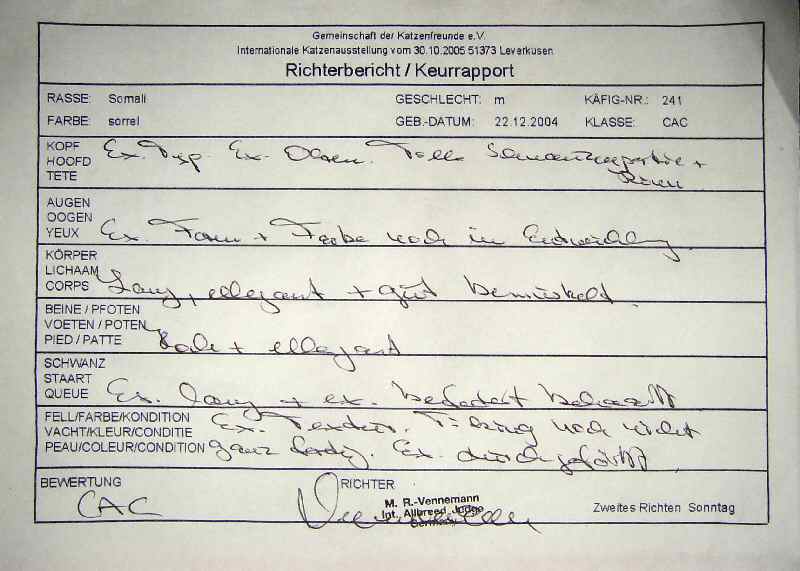 Gemeinschaft der Katzenfreunde e.V.
Internationale Katzenausstellung vom 30.10.2005 51373 Leverkusen
Richterbericht / Keurrapport
RASSE: Somali GESCHLECHT: m KÄFIG-NR.: 241
FARBE: sorrel GEB.-DATUM: 22.12.2004 KLASSE: CAC
KOPF
HOOFD
TETE
Ex. Typ. Ex. Ohren. Tolle +
AUGEN
OOGEN
YEUX
Ex. Form + Farbe noch in Entwicklung
KÖRPER
LICHAAM
CORPS
Lang, ellegant + gut bemuskelt.
BEINE / PFOTEN
VOETEN / POTEN
PIED / PATTE
hoch + ellegant
SCHWANZ
STAART
QUEUE
Ex. lang + ex. behaart
FELL/FARBE/KONDITION
VACHT/KLEUR/CONDITIE
PEAU/COLEUR/CONDITION
Ex. Textur. Ticking noch nicht
ganz fertig. Ex. durchgefärbt
BEWERTUNG
CAC
RICHTER
M. R.-Vennemann
Int. Allbreed Judge
Germany
Zweites Richten Sonntag